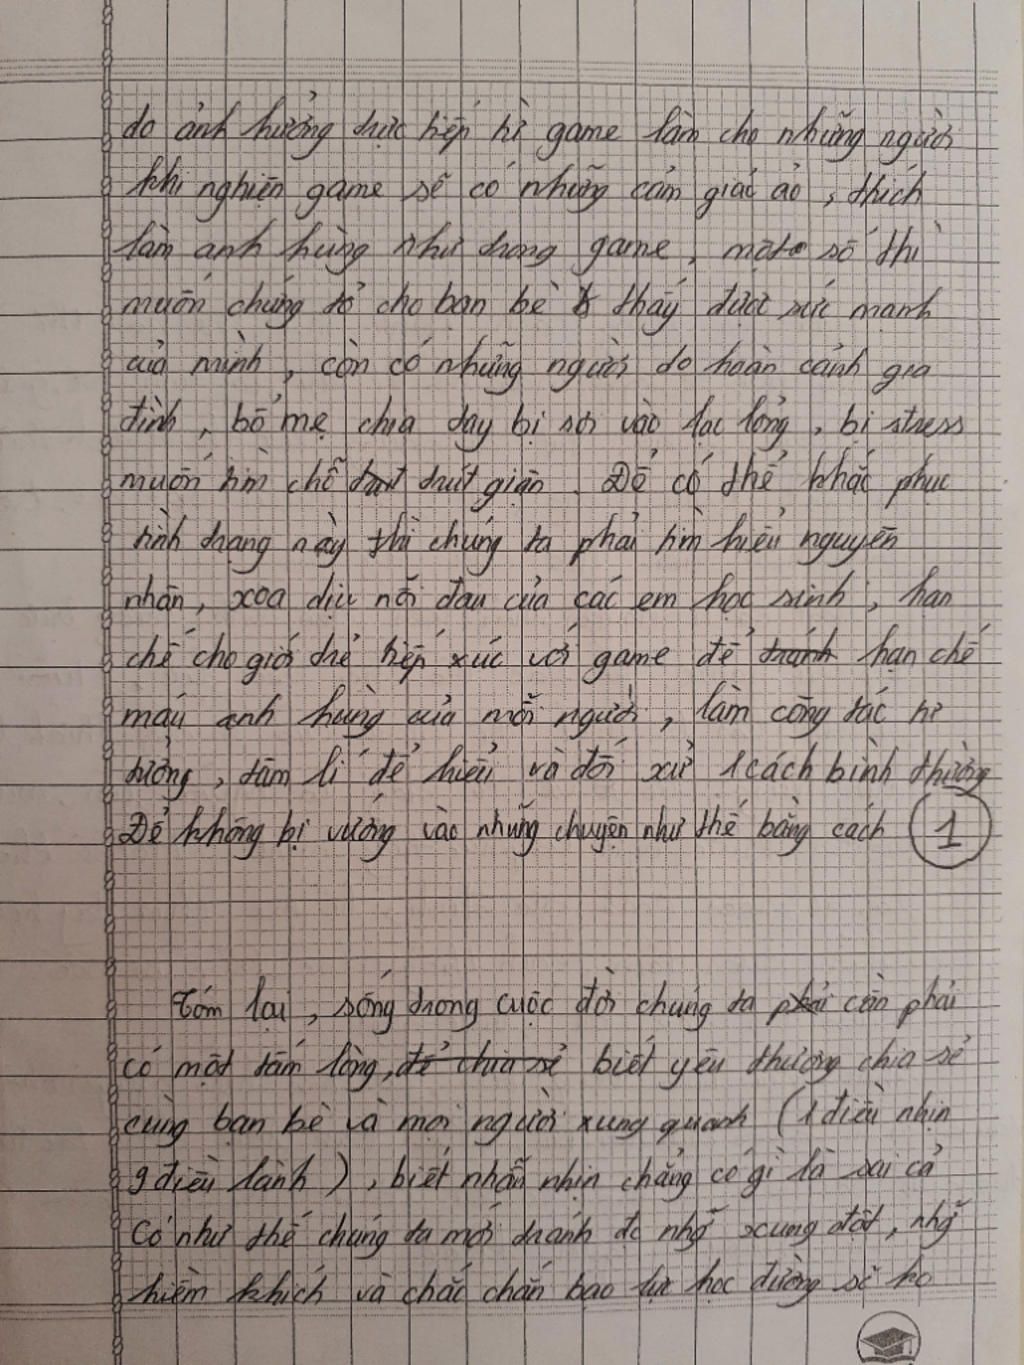 do ảnh hưởng trực tiếp từ game làm cho những người
khi nghiện game sẽ có những cảm giác ảo, thích
làm anh hùng như trong game, một số thì
muốn chứng tỏ cho bạn bè thấy được sức mạnh
của mình, còn có những người do hoàn cảnh gia
đình, bố mẹ chia tay bị rơi vào lạc lõng, bị stress
muốn tìm chỗ trút giận. Để có thể khắc phục
tình trạng này thì chúng ta phải tìm hiểu nguyên
nhân, xoa dịu nỗi đau của các em học sinh, hạn
chế cho giới trẻ tiếp xúc với game để tránh hạn chế
máu anh hùng của mỗi người, làm công tác tư
tưởng, tâm lí để hiểu và đối xử 1 cách bình thường
Để không bị vướng vào những chuyện như thế bằng cách 1
Tóm lại, sống trong cuộc đời chúng ta phải cần phải
có một tấm lòng, để chia sẻ biết yêu thương chia sẻ
cùng bạn bè và mọi người xung quanh (1 điều nhịn
9 điều lành), biết nhẫn nhịn chẳng có gì là sai cả
Có như thế chúng ta mới tránh đc nhg~ xung đột, nhg~
hiềm khích và chắc chắn bạo lực học đường sẽ ko